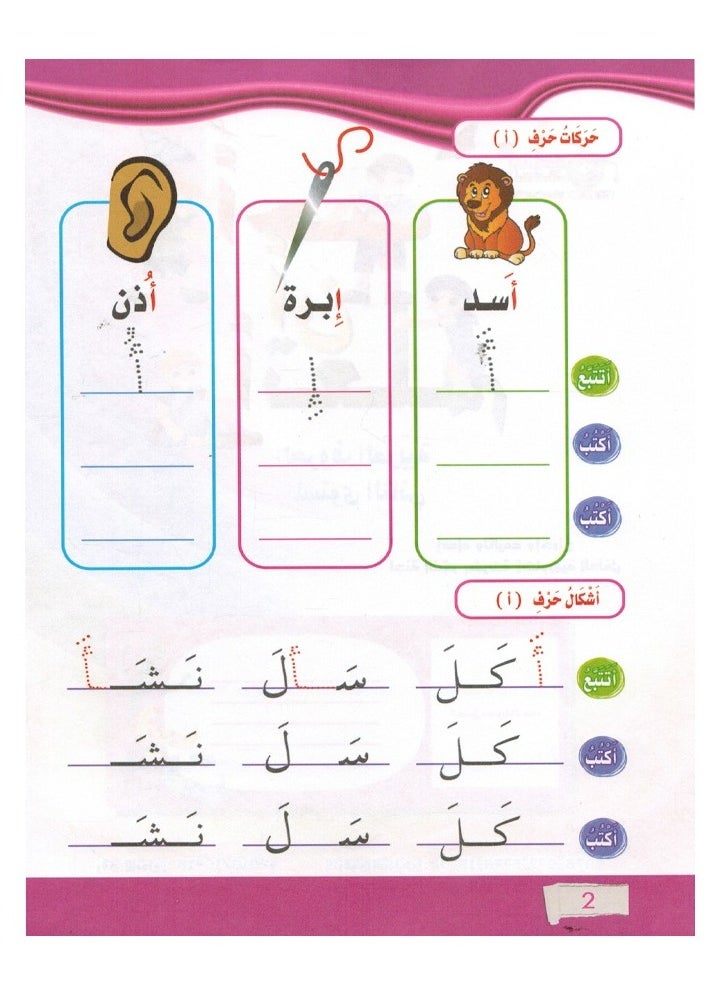 حَرَكَاتُ حَرْفِ (أ)
أَسد إِبرة أُذن
أَ إِ أُ
أَتَتَبَّعُ
أَكْتُبُ
أَكْتُبُ
أَشْكَالُ حَرْفِ (أ)
أَتَتَبَّعُ أَ كَـلَ سَـأَلَ نَـشَـأَ
أَكْتُبُ كَـلَ سَـ لَ نَـشَـ
أَكْتُبُ كَـلَ سَـ لَ نَـشَـ
2